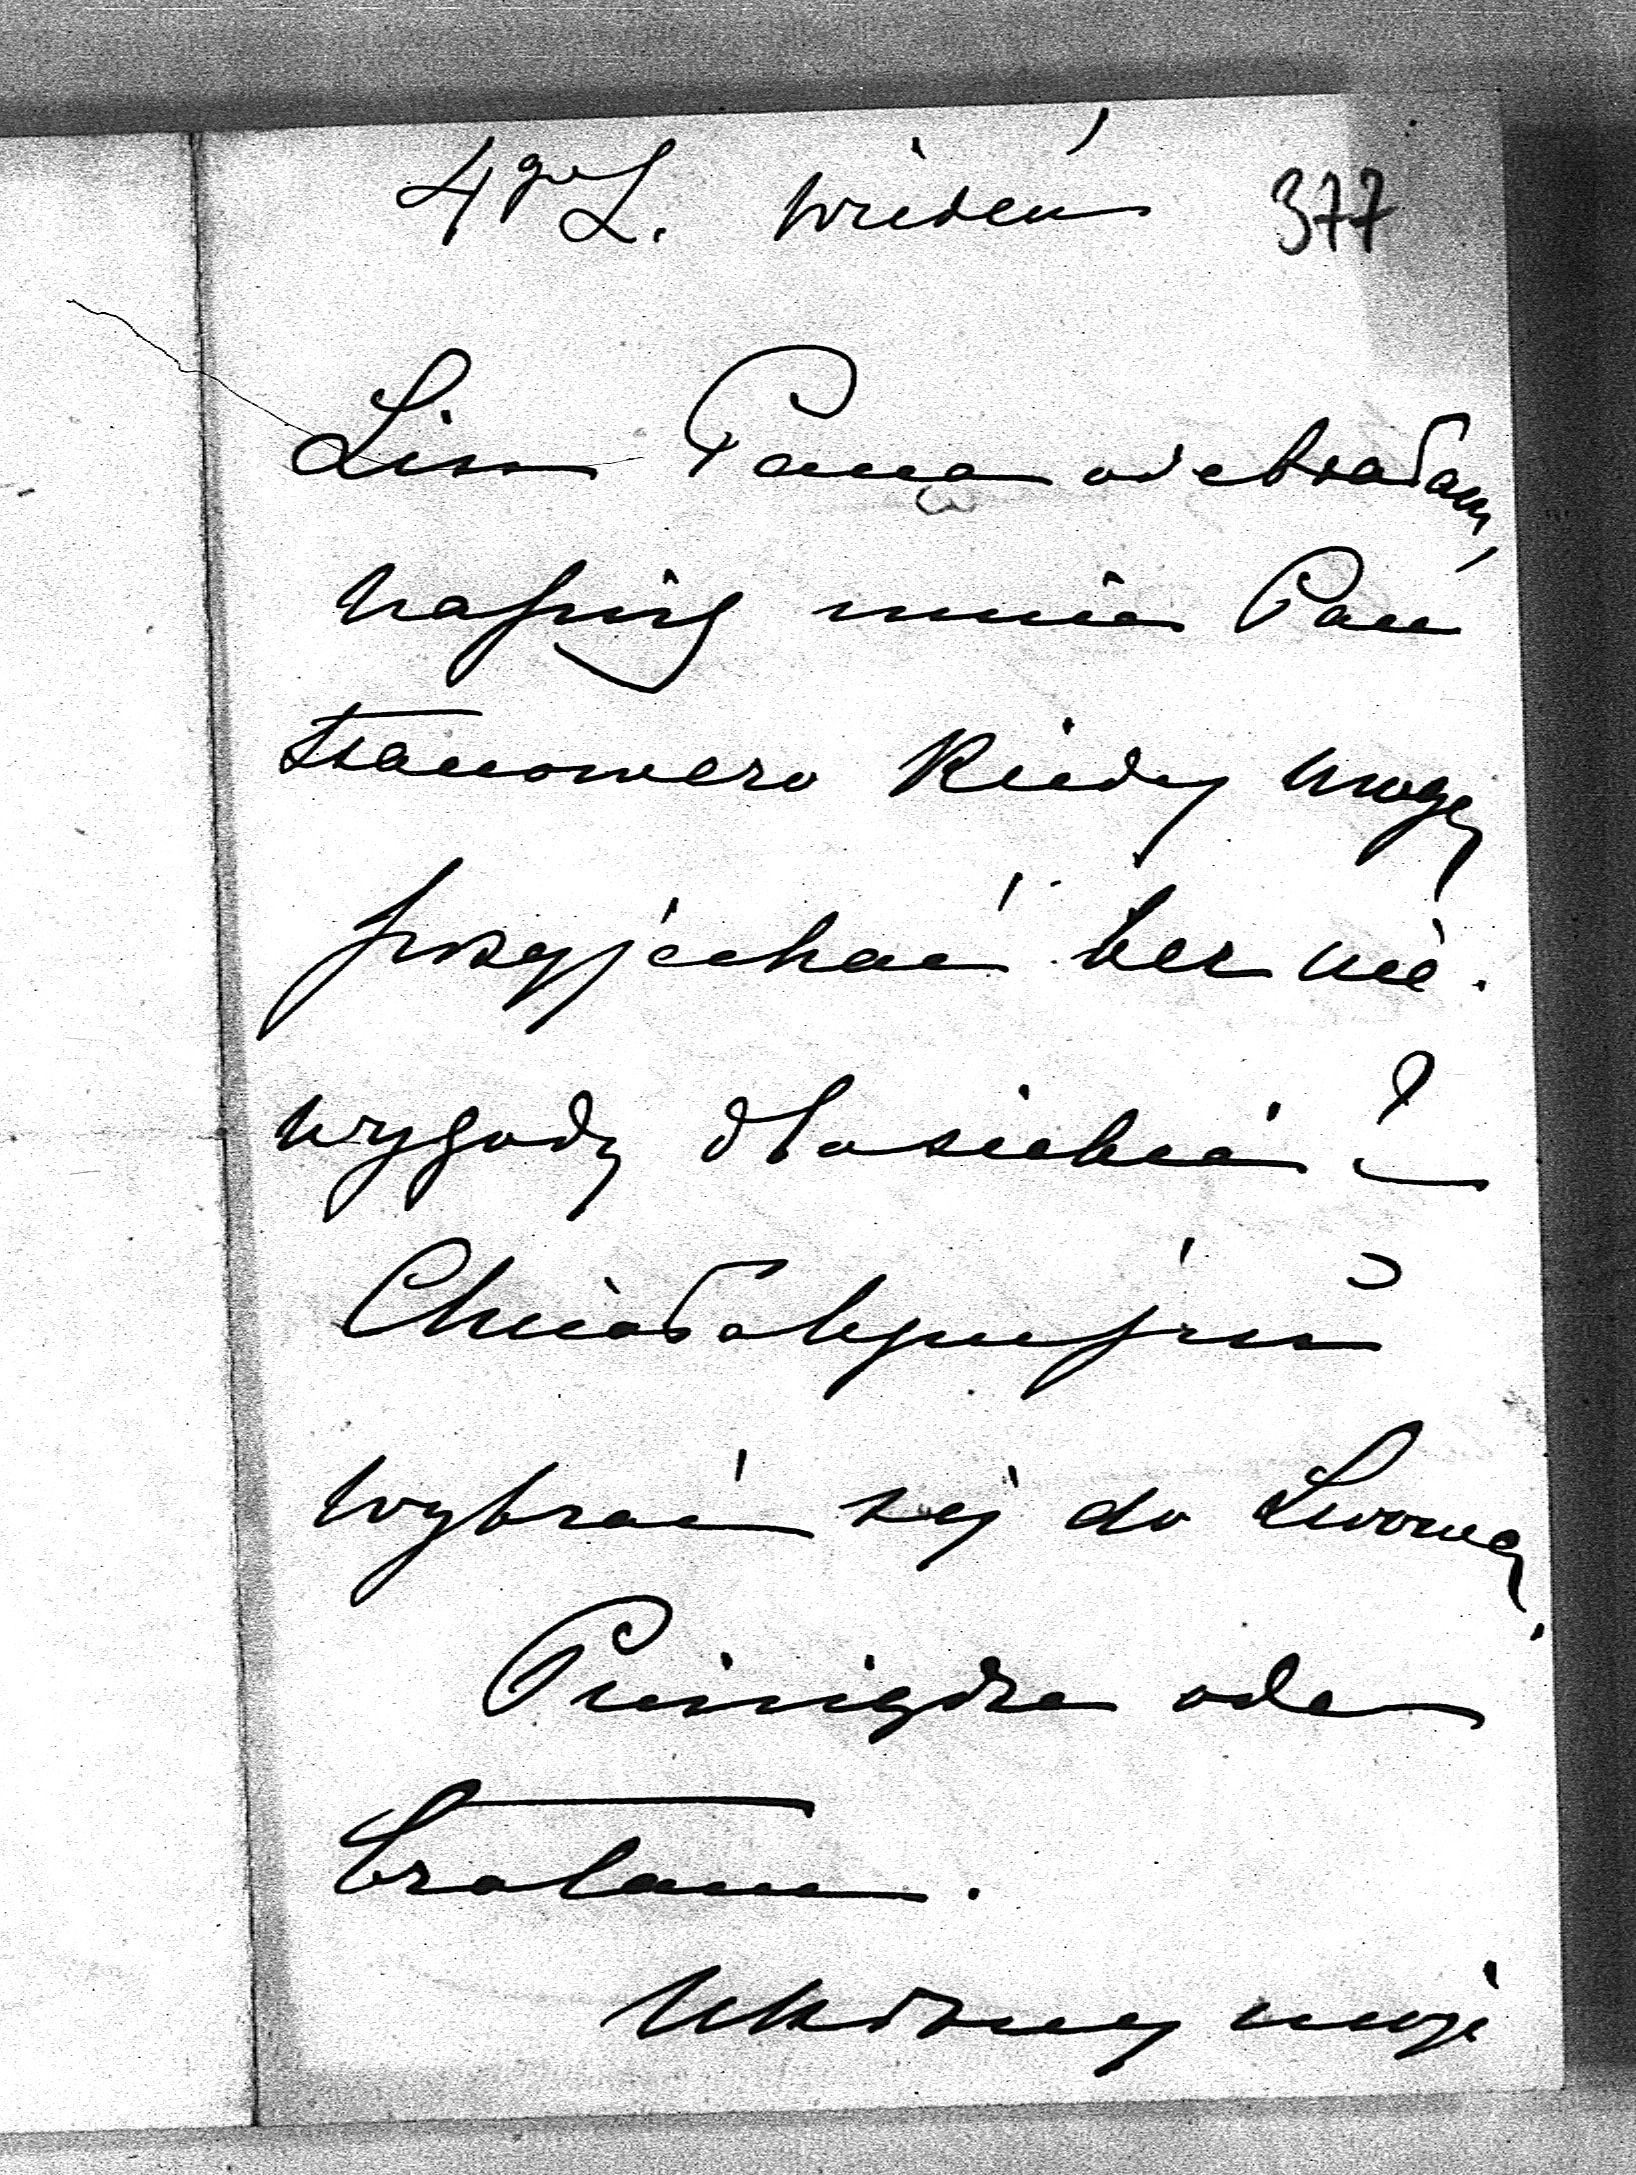 4go L. Wiedeń 377
List Pana odebrałam,
napisz mnie Pan
stanowczo kiedy mogę
przyjechać bez nie-
wygody dla siebie?
Chciałabym już
wybrać się do Lwowa.
Pieniądze ode
brałam.
Ukłony moje